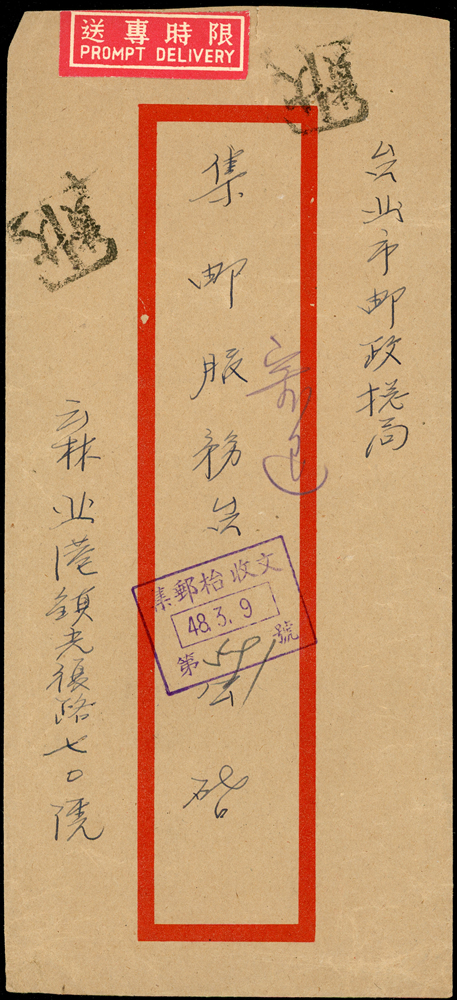 限時專送
PROMPT DELIVERY
台北市邮政总局
集邮服務台
啓
寄退
集郵枱收文
48.3.9
第 號
云林北港鎮光復路七〇號